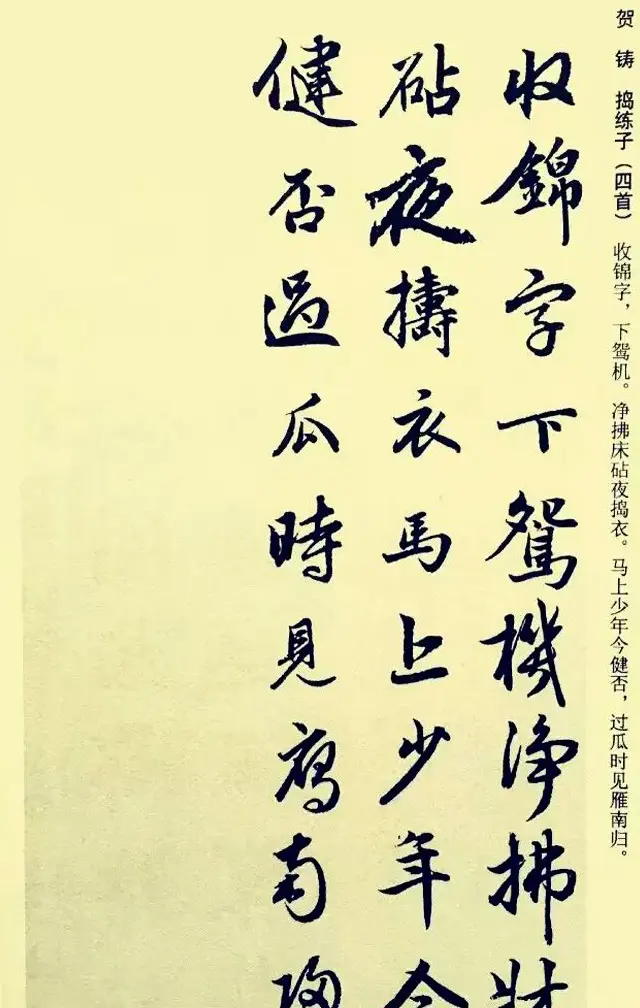 贺铸 捣练子（四首） 收锦字，下鸳机。净拂床砧夜捣衣。马上少年今健否，过瓜时见雁南归。
收錦字下鴛機淨拂牀
砧夜擣衣馬上少年今
健否過瓜時見鴈南歸